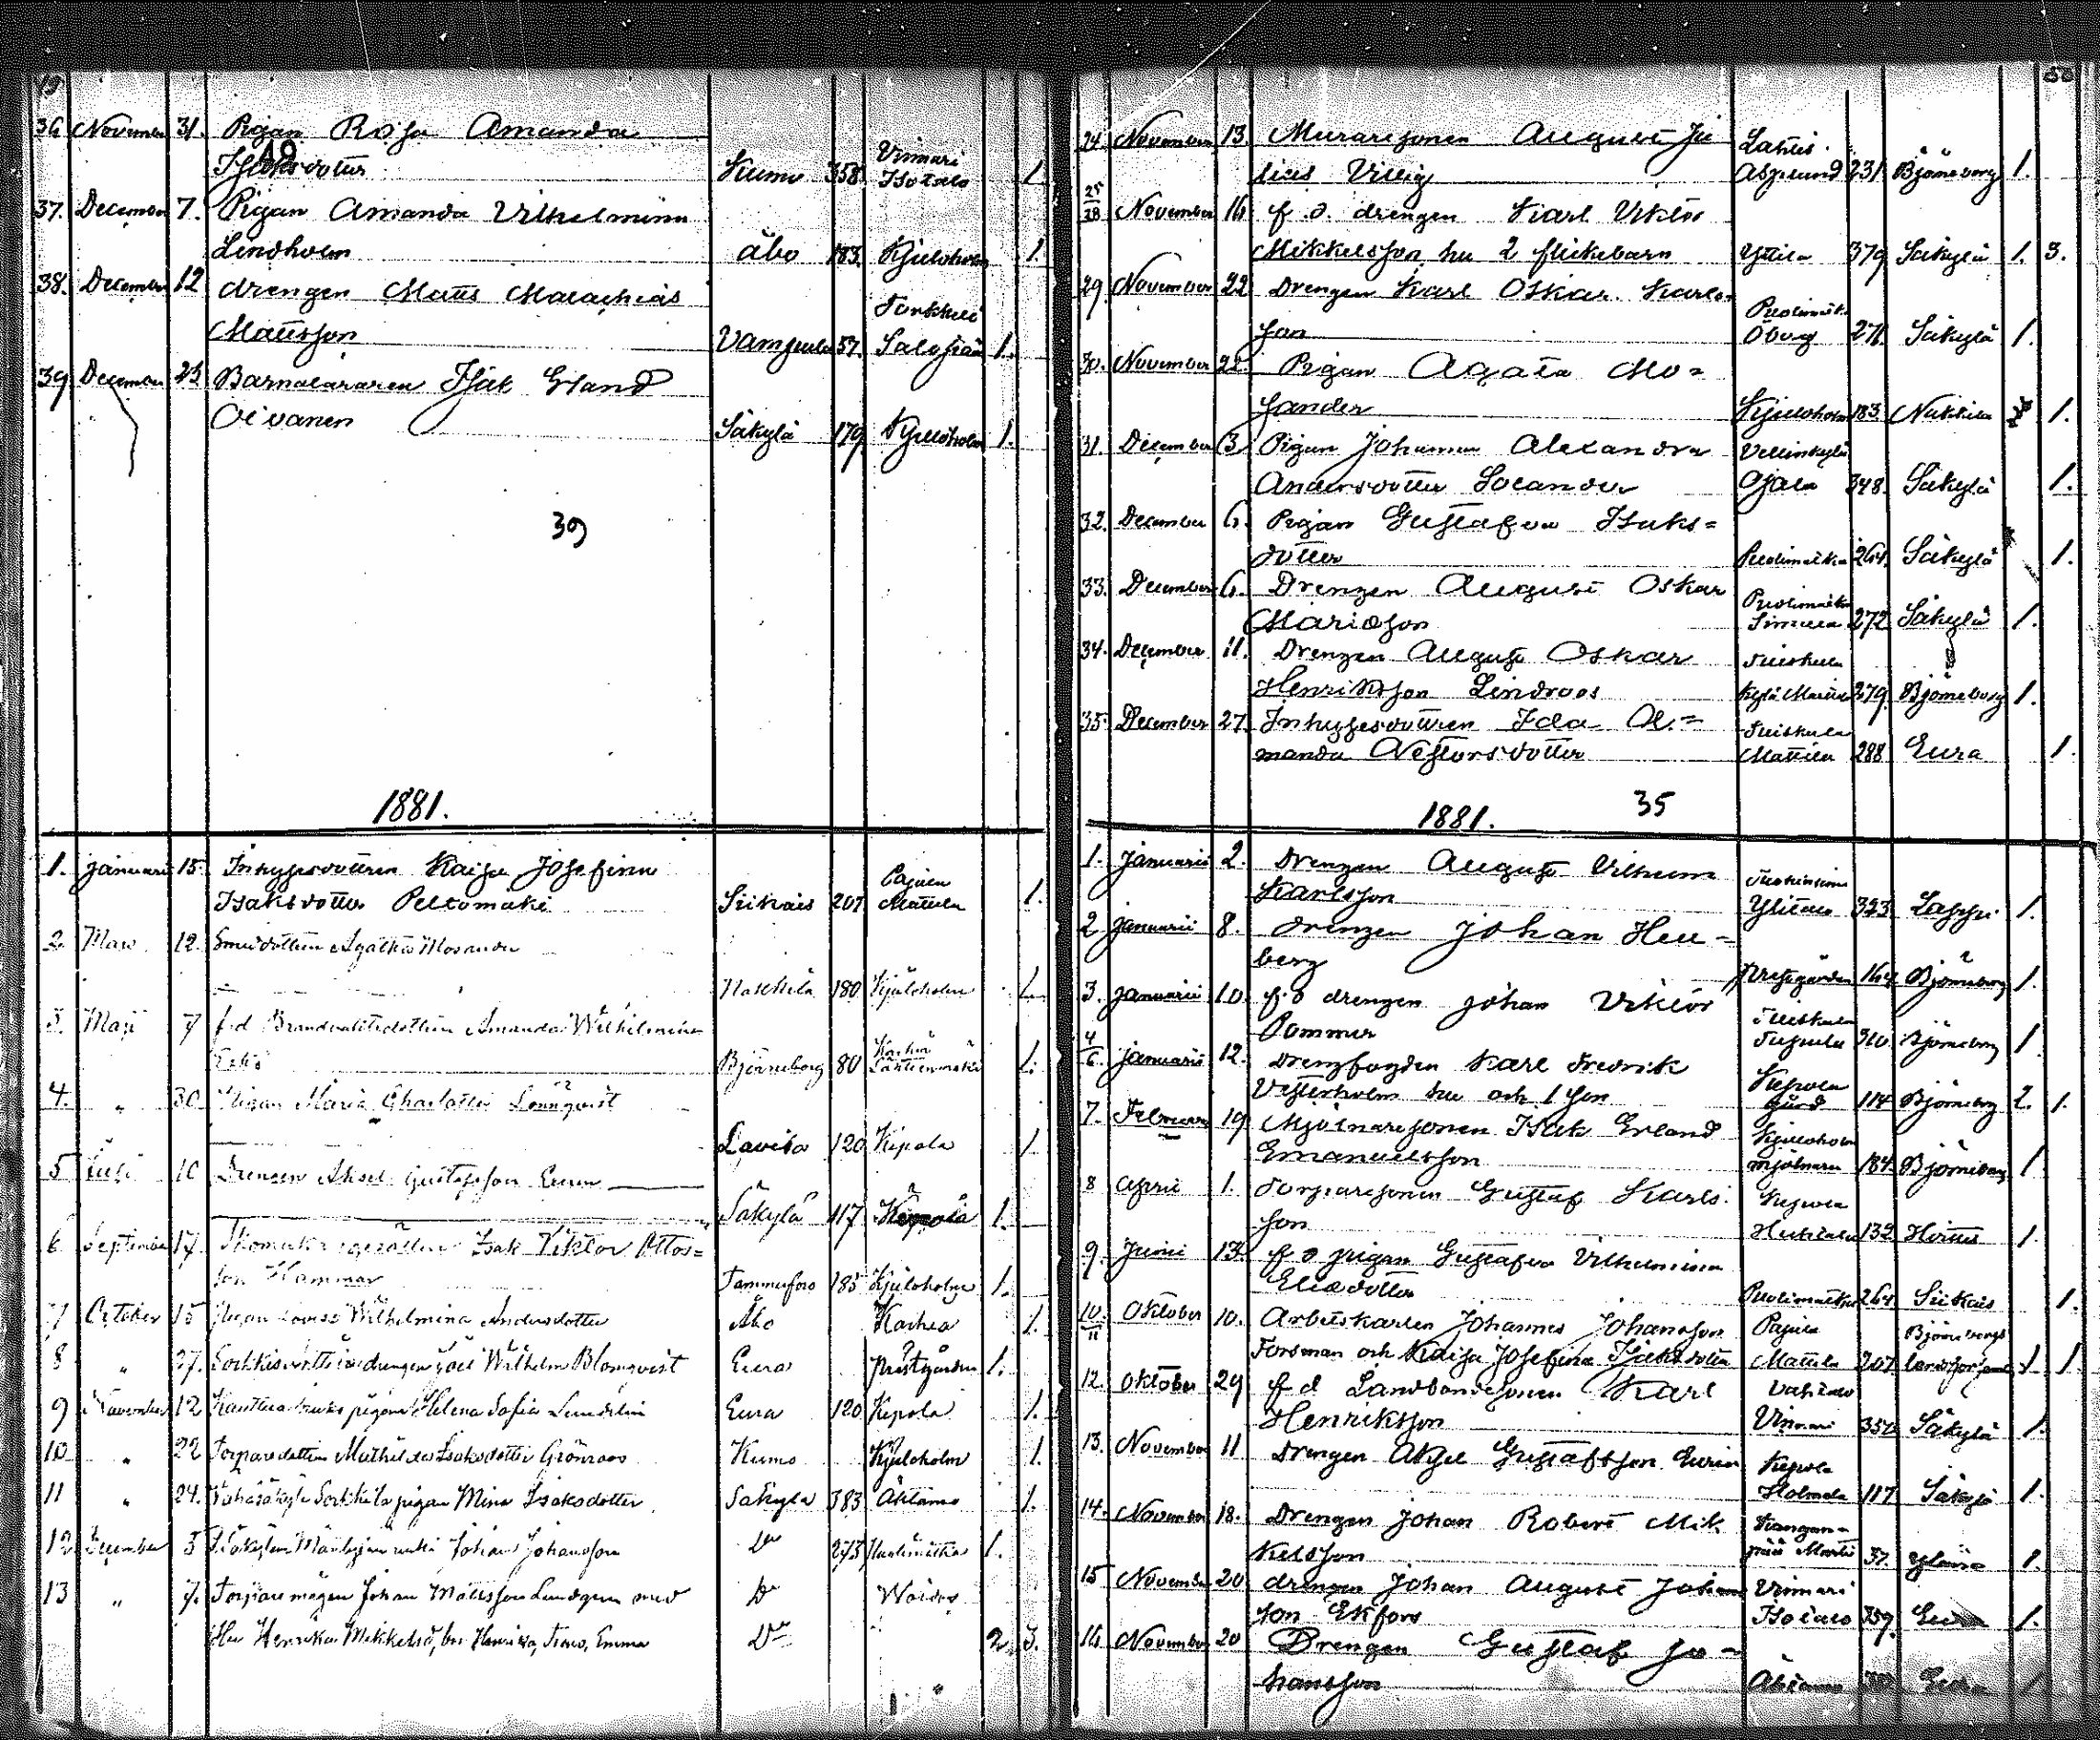 49
36. November 31. Pigan Rosa Amanda
49
Isaksdotter Kumo 358. Viinari Isotalo 1.
37. December 7. Pigan Amanda Vilhelmina
Lindholm Åbo 183. Kjuloholm 1.
38. December 12 drengen Matts Malachias
Mattsson Vampula 57. 1.
39 December 23 Barnaläraren Isak Erland
Oivanen Säkylä 179. Kjuloholm 1.
39
1881.
1. januari 15. Inhysesdottren Kaisa Josefina
Isaksdotter Peltomäki Siikais 207 Pajula Mattila 1.
2. Mars 12. Agatha Mosander
Nakkila 180 Kjuloholm 1.
3. Maji 7 f.d. Amanda Wilhelmina
Björneborg 80 1.
4. " 30. Pigan Maria Charlotta Lönnqvist
Lavila 120 Kepola 1
5 Juli 10 Drengen Aksel Gustafsson Eurén
Säkylä 117 Kepola 1.
6 September 17. Isak Viktor Ottos=
son Hammar Tammerfors 185 Kjuloholm 1.
7 October 15 Pigan Lovisa Wilhelmina Andersdotter Åbo Karhia 1.
8 " 27. drengen Joel Wilhelm Blomqvist Eura Prestgården 1.
9 November 12 pigan Helena Sofia Eura 120 Kepola 1.
10 " 22 Torparedottern Mathilda Isaksdotter Grönroos Kumo Kjuloholm 1.
11 " 24. pigan Mina Isaksdotter Säkylä 383 Ahtamo 1.
12 December 3 Johan Johansson Do 273 Puolimatka 1.
13 " 7. Torparemågen Johan Mattsson Lundgren med Do
Hu Henrika Mikkelsd, bn Henrika, Emma Do 2 3.
50
24 November 13. Muraresonen August Ju Lahtis
lius Villig Asplund 231. Björneborg 1.
25/28 November 16 f.d. drengen Karl Viktor
Mikkelsson, hu 2 flickebarn Yttilä 379 Säkylä 1. 3.
29 November 22 Drengen Karl Oskar Karls- Puolimatka
son Öberg 276. Säkylä 1.
30. November 22. Pigan Agata Mo=
sander Kjuloholm 183. Nakkila 1.
31. December 3 Pigan Johanna Alexandra
Andersdotter Ojala 348. Säkylä 1.
32. December 6. Pigan Gustafva Isaks=
dotter Puolimatka 264. Säkylä 1.
33. December 6. Drengen August Oskar Puolimatka
Mariason Simula 272 Säkylä 1.
34. December 11. Drengen August Oskar Tuiskula
Henriksson Lindroos 279. Björneborg 1.
35. December 27. Inhysesdottren Ida A= Tuiskula
manda Nestorsdotter Mattila 288 Eura 1.
1881. 35
1. januarii 2. Drengen August Vilhelm
Karlsson 323. Lappi 1.
2 januarii 8. drengen Johan Hell-
berg Prestgården 164 Björneborg 1.
3. januarii 10. f.d drengen johan Viktor Tuiskula
Pommer 310. Björneborg 1
4/6. januarii 12. Drengfogden Karl Fredrik Kepola
Vesterholm hu och 1 son gård 114 Björneborg 2. 1.
7. Februari 19 Mjölnaresonen Isak Erland Kjuloholm
Emanuelsson mjölnare 184. Björneborg 1
8 April 1. Torparesonen Gustaf Karls- Kepola
son 132. Hvittis 1.
9. Junii 13. f d pigan Gustafva Vilhelmina
Eliadotter Puolimatka 264 Siikais 1.
10/11 Oktober 10. Arbetskarlen Johannes Johansson Pajula Björneborgs
Forsman och Kaisa Josefina Isaksdotter Mattila 207 landsförsaml. 1 1.
12. Oktober 29 f d Landbondesonen Karl
Henriksson Viinari 350 Säkylä 1.
13. November 11 Drengen Aksel Gustafsson Eurén Kepola
117 Säkylä 1.
14. November 18. Drengen Johan Robert Mik
kelsson 37. Yläne 1.
15 November 20 drengen Johan August Johans Viinari
son Ekfors Isotalo 359. Eura 1.
16. November 20 Drengen Gustaf Jo-
hansson Ahtamo Eura 1